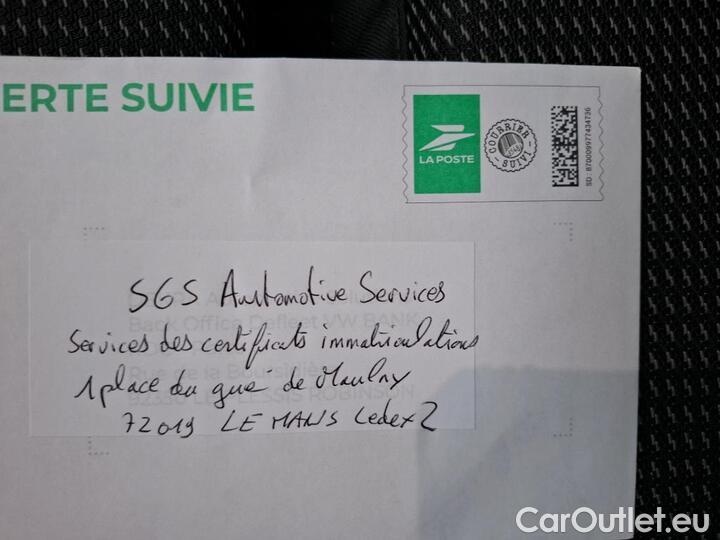 ERTE SUIVIE
LA POSTE
COURRIER
SUIVI
SD : 870009977434736
SGS Automotive Services
Services des certificats immatriculations
1 place du gué de Maulny
72019 LE MANS Cedex 2
Back Office Deflect VW BANK
Rue de la Boursidière
92350 LE PLESSIS ROBINSON
CarOutlet.eu